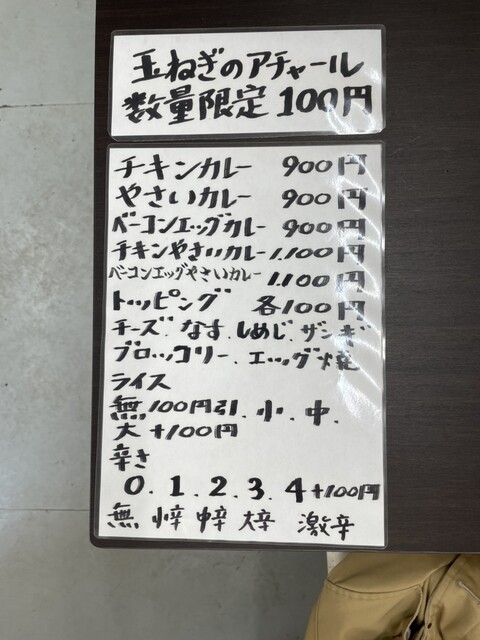 玉ねぎのアチャール
数量限定 100円
チキンカレー 900円
やさいカレー 900円
ベーコンエッグカレー 900円
チキンやさいカレー 1.100円
ベーコンエッグやさいカレー 1.100円
トッピング 各100円
チーズ.なす.しめじ.ザンギ
ブロッコリー.エッグ焼
ライス
無100円引.小.中.
大+100円
辛さ
0.1.2.3.4+100円
無 小辛 中辛 大辛 激辛